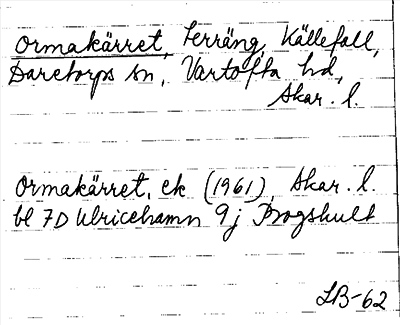 Ormakärret, Terräng, Källefall,
Daretorps sn, Vartofta hd,
Skar. l.
Ormakärret, ek (1961), Skar. l.
bl 7D Ulricehamn 9j Brogshult
LB-62